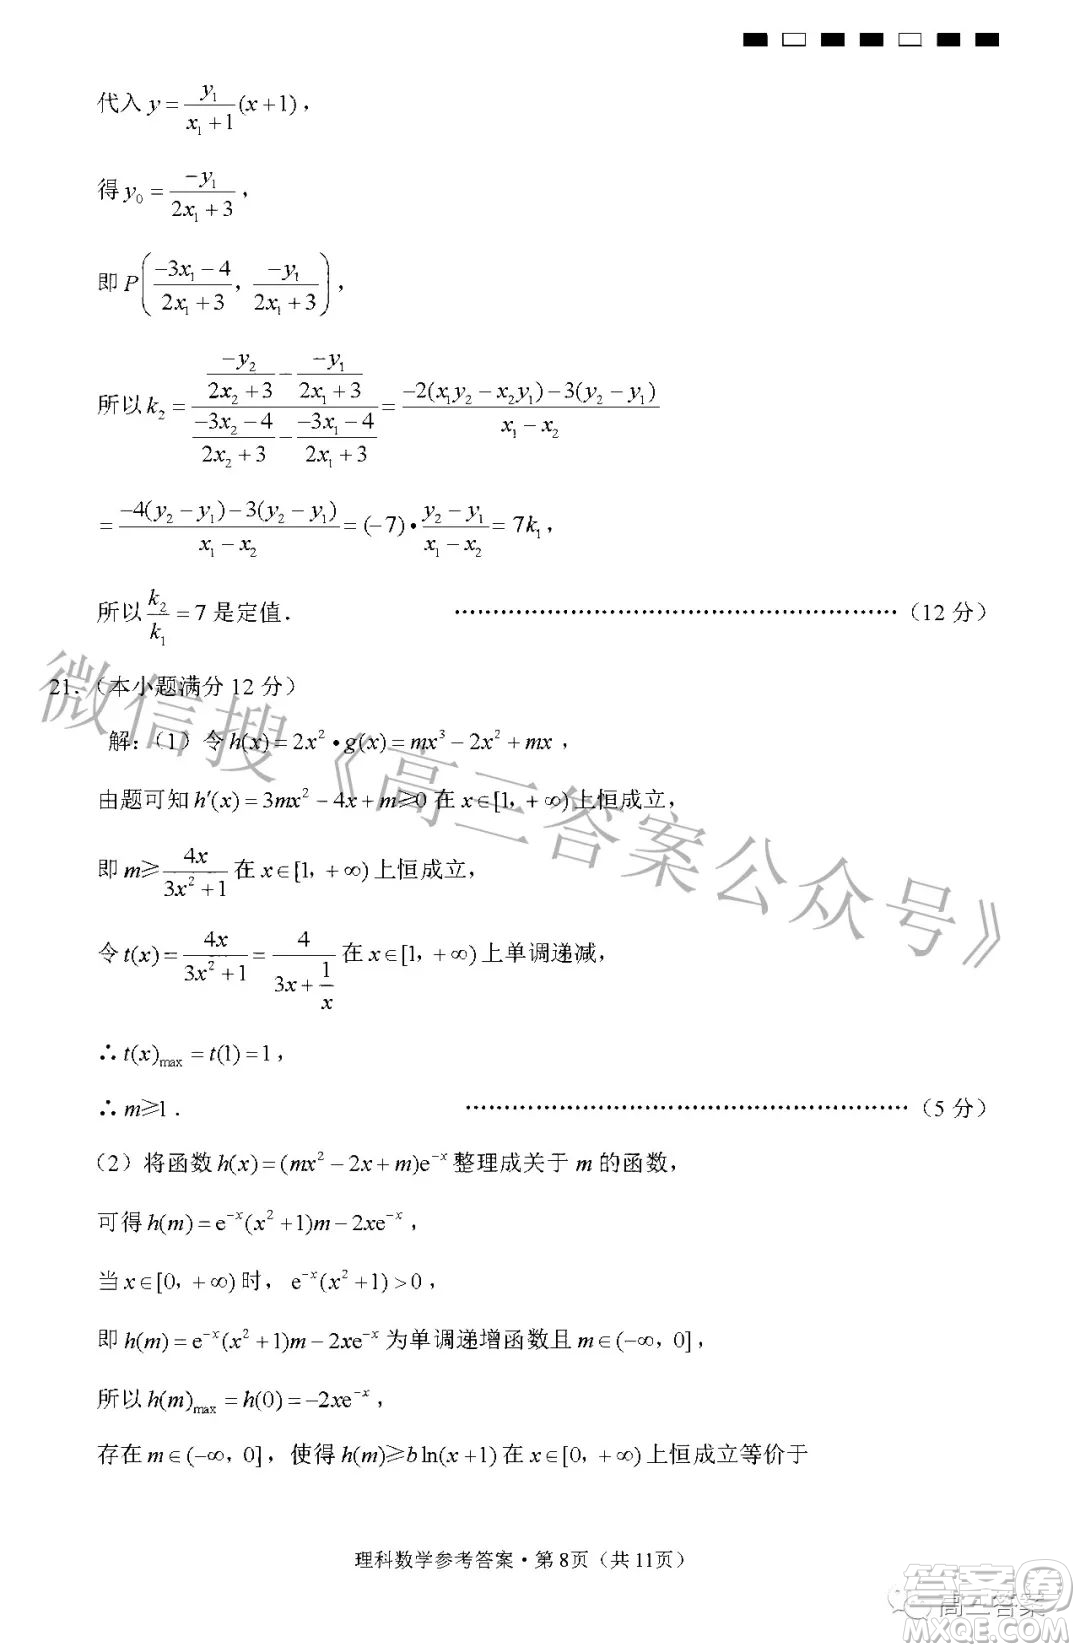 代入 y = y₁/(x₁+1) (x+1)，
得 y₀ = -y₁/(2x₁+3)，
即 P((-3x₁-4)/(2x₁+3)，-y₁/(2x₁+3))，
所以 k₂ = (-y₂/(2x₂+3) - -y₁/(2x₁+3))/((-3x₂-4)/(2x₂+3) - (-3x₁-4)/(2x₁+3)) = (-2(x₁y₂-x₂y₁)-3(y₂-y₁))/(x₁-x₂)
= (-4(y₂-y₁)-3(y₂-y₁))/(x₁-x₂) = (-7)•(y₂-y₁)/(x₁-x₂) = 7k₁，
所以 k₂/k₁ = 7 是定值． ……………………………………………（12 分）
21．（本小题满分 12 分）
解：（1）令 h(x)=2x²•g(x)=mx³-2x²+mx，
由题可知 h′(x)=3mx²-4x+m≥0 在 x∈[1，+∞)上恒成立，
即 m≥4x/(3x²+1) 在 x∈[1，+∞)上恒成立，
令 t(x)=4x/(3x²+1)=4/(3x+1/x) 在 x∈[1，+∞)上单调递减，
∴ t(x)max = t(1)=1，
∴ m≥1． ……………………………………………（5 分）
（2）将函数 h(x)=(mx²-2x+m)e⁻ˣ 整理成关于 m 的函数，
可得 h(m)=e⁻ˣ(x²+1)m-2xe⁻ˣ，
当 x∈[0，+∞)时，e⁻ˣ(x²+1)>0，
即 h(m)=e⁻ˣ(x²+1)m-2xe⁻ˣ 为单调递增函数且 m∈(-∞，0]，
所以 h(m)max = h(0)=-2xe⁻ˣ，
存在 m∈(-∞，0]，使得 h(m)≥bln(x+1)在 x∈[0，+∞)上恒成立等价于
理科数学参考答案·第 8页（共 11页）
微信搜《高三答案公众号》
高三答案
答案圈
MXQE.COM